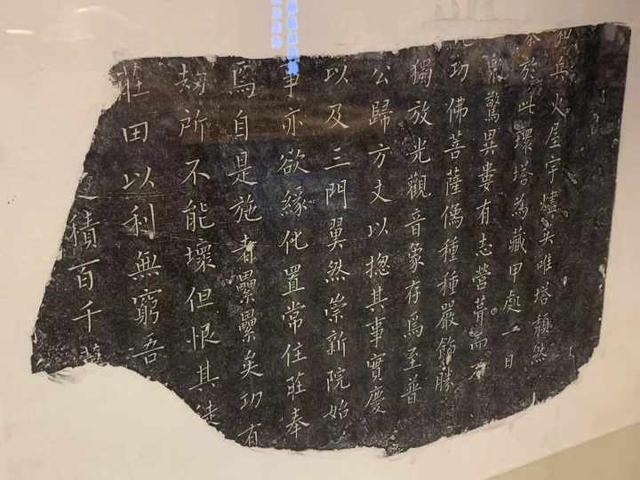 兵火屋宇燼矣唯塔頹然
於此環塔為藏甲處一日
驚異婁有志營葺而不
功佛菩薩儀種種嚴飾勝
獨放光觀音象存焉至普
公歸方丈以揔其事實慶
以及三門翼然崇新院始
事亦欲緣化置常住莊奉
焉自是施者纍纍矣功有
劫所不能壞但恨其徒
莊田以利無窮吾
之積百千